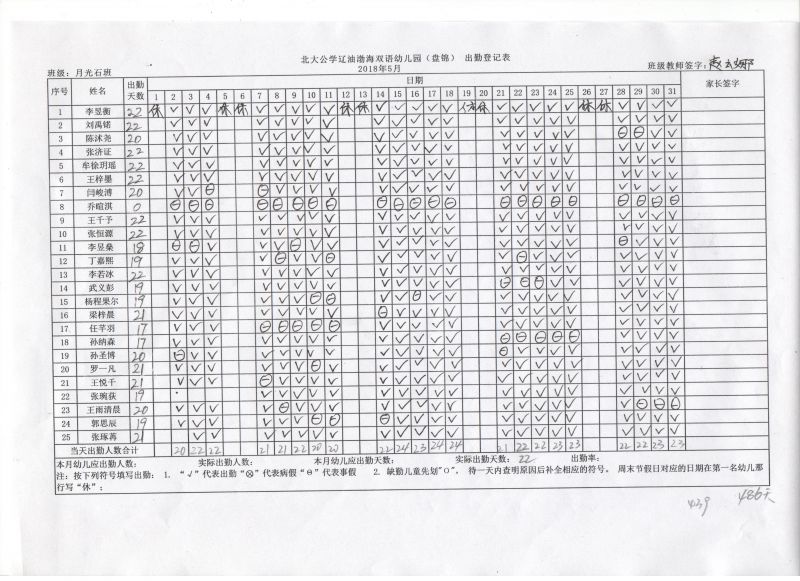 北大公学辽油渤海双语幼儿园（盘锦） 出勤登记表
2018年5月
班级：月光石班 班级教师签字：
序号 姓名 出勤天数 日期 家长签字
1 2 3 4 5 6 7 8 9 10 11 12 13 14 15 16 17 18 19 20 21 22 23 24 25 26 27 28 29 30 31
1 李昱衡 22 休 √ √ √ 休 休 √ √ √ √ √ 休 休 √ √ √ √ √ 休 休 √ √ √ √ √ 休 休 √ √ √ √
2 刘禹铭 22
3 陈沭尧 20
4 张济证 22
5 牟徐玥瑶 22
6 王梓墨 22
7 闫峻溥 20
8 乔暄淇 0
9 王千予 22
10 张恒源 22
11 李昱燊 18
12 丁嘉熙 19
13 李若冰 22
14 武义彭 19
15 杨程果尔 19
16 梁梓晨 21
17 任芊羽 17
18 孙纳森 17
19 孙圣博 20
20 罗一凡 21
21 王悦千 21
22 张琬荻 19
23 王雨清晨 20
24 郭思辰 19
25 张琢苒 21
当天出勤人数合计 20 22 22 21 21 22 20 20 22 24 23 24 24 21 22 22 23 23 22 22 23 23
本月幼儿应出勤人数： 实际出勤人数： 本月幼儿应出勤天数： 实际出勤天数：22 出勤率：
注：按下列符号填写出勤： 1. “√”代表出勤“⊗”代表病假“θ”代表事假 2. 缺勤儿童先划"O"， 待一天内查明原因后补全相应的符号。 周末节假日对应的日期在第一名幼儿那
行写“休”；
439 486天